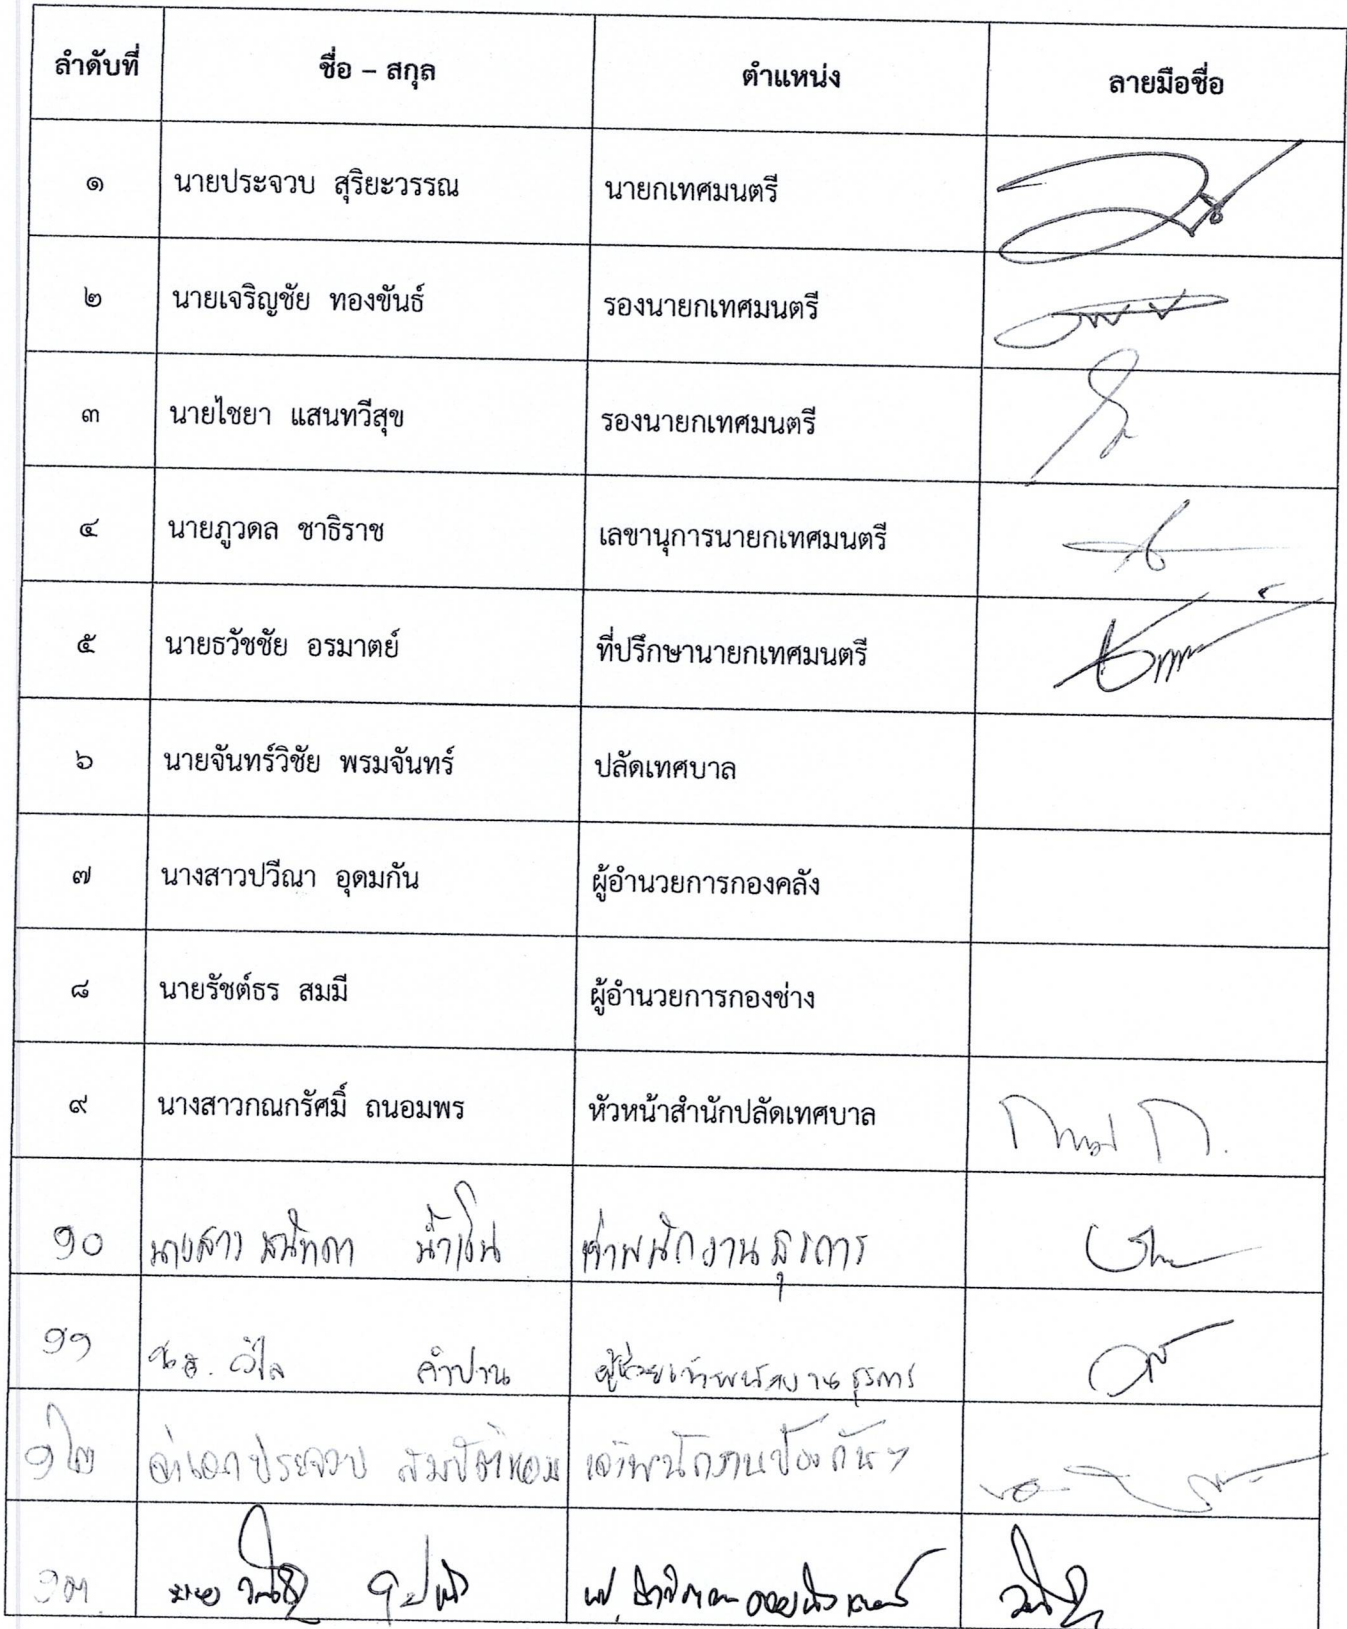 ลำดับที่ ชื่อ – สกุล ตำแหน่ง ลายมือชื่อ
๑ นายประจวบ สุริยะวรรณ นายกเทศมนตรี
๒ นายเจริญชัย ทองขันธ์ รองนายกเทศมนตรี
๓ นายไชยา แสนทวีสุข รองนายกเทศมนตรี
๔ นายภูวดล ชาธิราช เลขานุการนายกเทศมนตรี
๕ นายธวัชชัย อรมาตย์ ที่ปรึกษานายกเทศมนตรี
๖ นายจันทร์วิชัย พรมจันทร์ ปลัดเทศบาล
๗ นางสาวปวีณา อุดมกัน ผู้อำนวยการกองคลัง
๘ นายรัชต์ธร สมมี ผู้อำนวยการกองช่าง
๙ นางสาวกณกรัศมิ์ ถนอมพร หัวหน้าสำนักปลัดเทศบาล
๑๐ นางสาว น้ำเงิน เจ้าพนักงานธุรการ
๑๑ คำปาน ผู้ช่วยเจ้าพนักงานธุรการ
๑๒ จ่าเอกประจวบ สมบัติหอม เจ้าพนักงานป้องกันฯ
๑๓. นาย